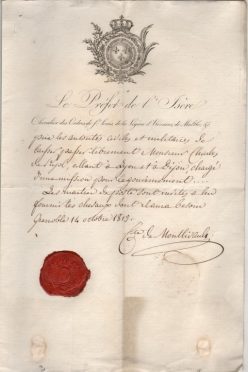 Le Préfet de l'Isère
Chevalier des Ordres de St. Louis, de la Légion d'Honneur, de Malthe, &
prie les autorités civiles et militaires de
laisser passer librement Monsieur Charles
de allant à Lyon et à Dijon chargé
d'une mission pour le gouvernement.
Les maîtres de poste sont invités à lui
fournir les chevaux dont il aura besoin
Grenoble 14 octobre
Cte. de Montlivault